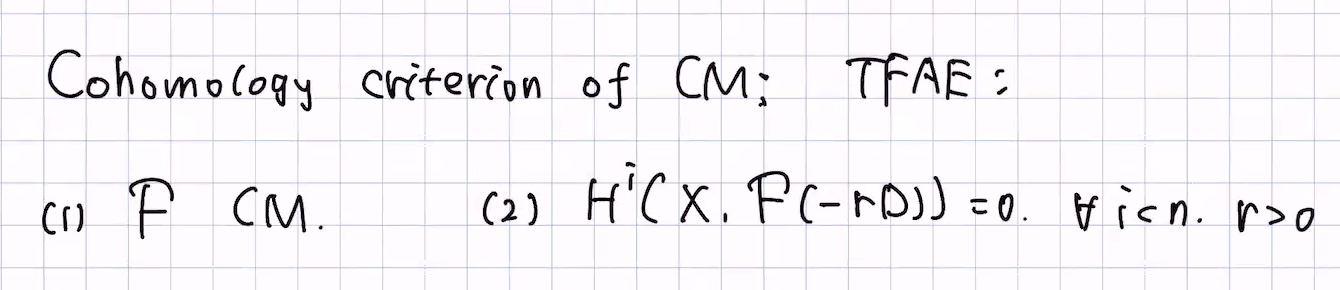 Cohomology criterion of CM; TFAE:
(1) F CM. (2) Hⁱ(X, F(-rD))=0. ∀ i<n. r>0